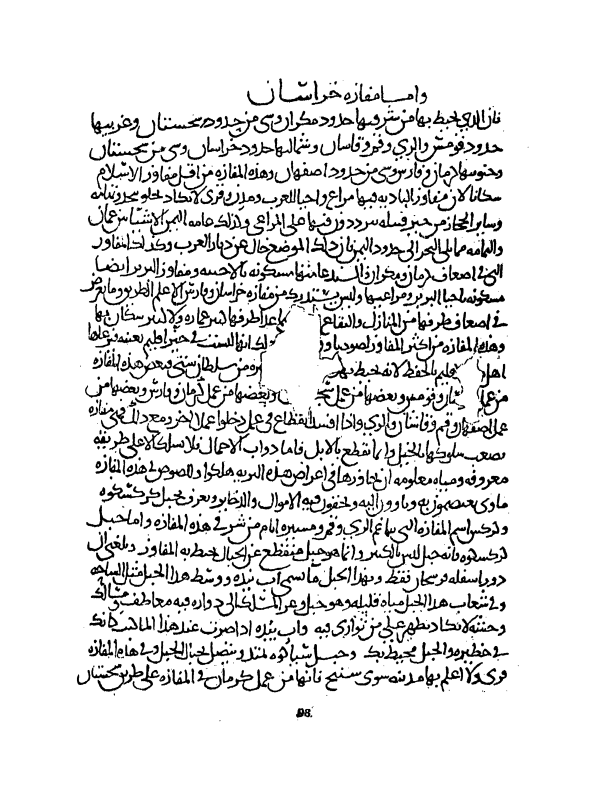 واما مفازه خراسان
فان الذي يحيط بها من شرقيها حدود مكران وشي من حدود سجستان وغربيها
حدود قومس والري وقم وقاسان وشماليها حدود خراسان وشي من سجستان
وجنوبيها كرمان وفارس وشي من حدود اصفهان وهذه المفازه من اقل مفاوز الاسلام
سكانا لان مفاوز الباديه فيها مراع واحيا للعرب ومدن وقرى لا تكاد تخلو نجد وتهامه
وساير الحجاز من حيز قبيله يترددون فيها على المراعي وكذلك عامه اليمن الا شيا بين عمان
واليمامه مما يلي البحر الى حدود اليمن فان ذلك الموضع خال عن ديار العرب وكذلك المفاوز
التي في اضعاف كرمان ومكران والسند عامتها مسكونه بالاخبيه ومفاوز البربر ايضا
مسكونه احيا البربر ومراعيها وليس من مفازه خراسان وفارس الا علم الطريق وما يعرض
في اضعاف طرفيها من المنازل والبقاع طرفها كبير عماره ولا كثير سكان بها
وهذه المفازه من اكثر المفاوز لصوصا و ولذلك انها ليست في حيز اقليم بعينه فيرعاها
اهل قليم بالحفظ لانه يحيط بهـ من سلطان شتى فبعض هذه المفازه
من عمل وقومس وبعضها من عمل وبعضها من عمل كرمان وفارس وبعضها من
عمل اصفهان وقم وقاشان والري واذا افسد القطاع في عمل دخلوا عملا اخر ومع ذلك فهي مفازه
يصعب سلوكها بالخيل وانما تقطع بالابل فاما دواب الاحمال فلا تسلك الا على طريقه
معروفه ومياه معلومه ان تجاوزها في اعراض هذه البريه هلكوا وللصوص في هذه المفازه
ماوى يعتصمون به وياوون اليه ويخفون فيه الاموال والذخاير ويعرف بجبل كركسكوه
وكركس اسم المفازه التي تتاخم الري وقم ومسيره ايام من شرقي هذه المفازه واما جبل
كركسكوه فانه جبل ليس بالكبير وانما هو جبل منقطع عن الجبال يحيط به المفاوز وبلغني ان
دور اسفله فرسخان فقط وبهذا الجبل ما يسمى اب بنده ووسط هذا الجبل مثل الساحه
وفي شعاب هذا الجبل مياه قليله وهو جبل وعر المسلك الى ذراه فيه معاطف ومسالك
وخشنه لا يكاد يظهر على من توارى فيه واب بنده اذا صرت عند هذا الما كانك
في حظيره والجبل محيط بك وجبل سياكوه ممتد ويتصل بجبال الجيل وفي هذه المفازه
قرى ولا اعلم بها مدينه سوى سنيج فانها من عمل كرمان في المفازه على طريق سجستان
98.